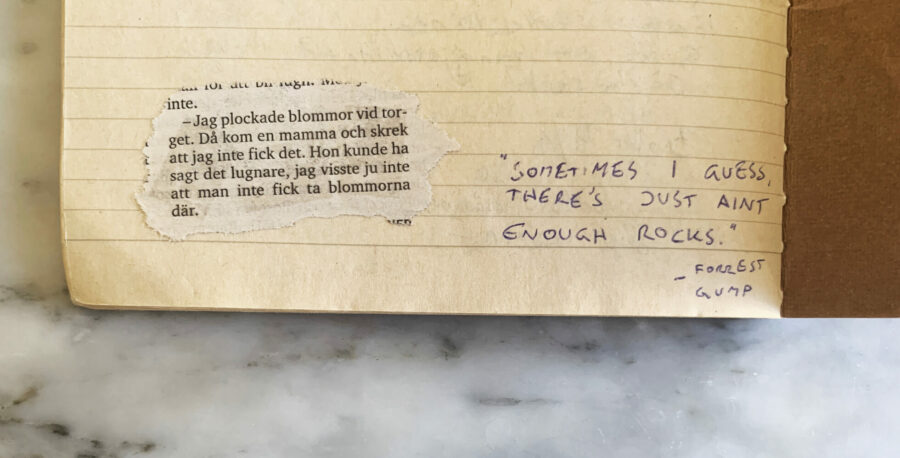 inte.
–Jag plockade blommor vid tor-
get. Då kom en mamma och skrek
att jag inte fick det. Hon kunde ha
sagt det lugnare, jag visste ju inte
att man inte fick ta blommorna
där.
"SOMETIMES I GUESS,
THERE'S JUST AINT
ENOUGH ROCKS."
– FORREST
GUMP